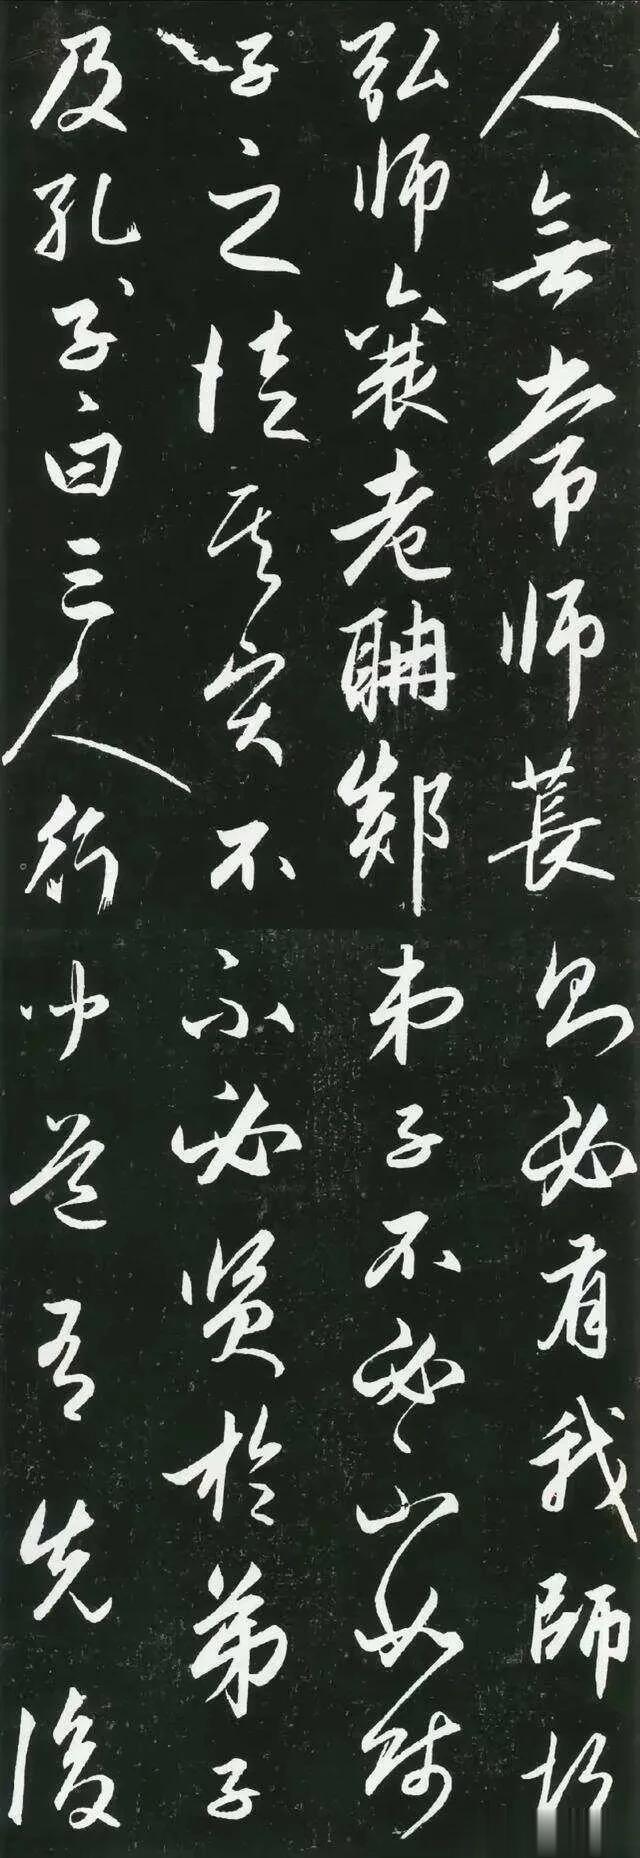 人無常師萇
弘師襄老聃郯
子之徒其賢不
及孔子曰三人行
則必有我師故
弟子不必不如師
不必賢於弟子
聞道有先後